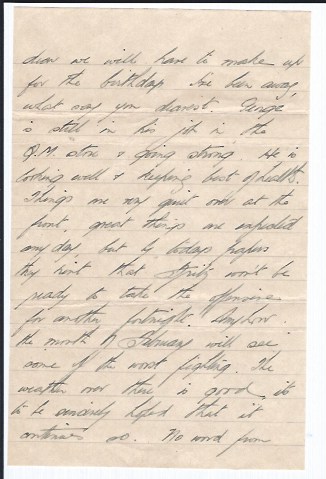 dear we will have to make up
for the birthday I've been away,
what say you dearest.
is still in his job in the
Q.M. store & going strong. He is
looking well & keeping best of health.
Things are very quiet over at the
front, great things are expected
any day but by todays papers
they hint that Fritz won't be
ready to take the offensive
for another fortnight. Anyhow
the month of February will see
some of the worst fighting. The
weather over there is good, its
to be sincerely hoped that it
continues so. No word from